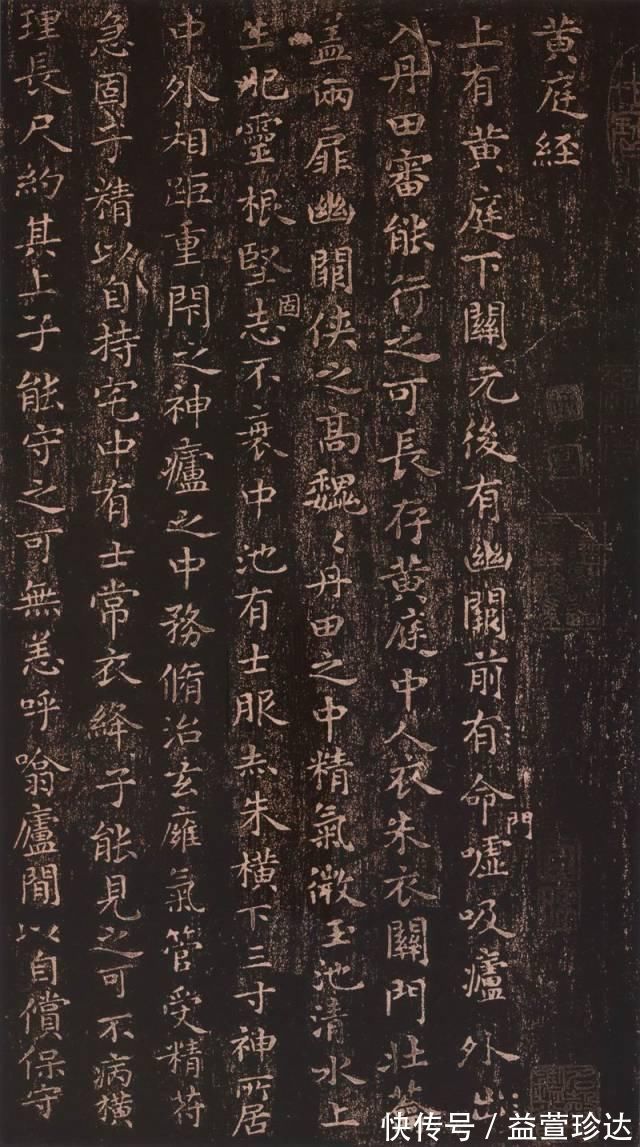 黄庭經
上有黄庭下關元後有幽闕前有命門噓吸廬外出
入丹田審能行之可長存黄庭中人衣朱衣關門壯蘥
盖兩扉幽關侠之高魏魏丹田之中精氣微玉池清水上
生肥靈根堅固志不衰中池有士服赤朱横下三寸神所居
中外相距重閇之神廬之中務脩治玄廱氣管受精符
急固子精以自持宅中有士常衣絳子能見之可不病横
理長尺約其上子能守之可無恙呼噏廬間以自償保守
快传号／益萱珍达